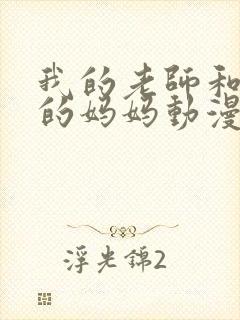 我的老師和
的妈妈動漫
浮光錦2